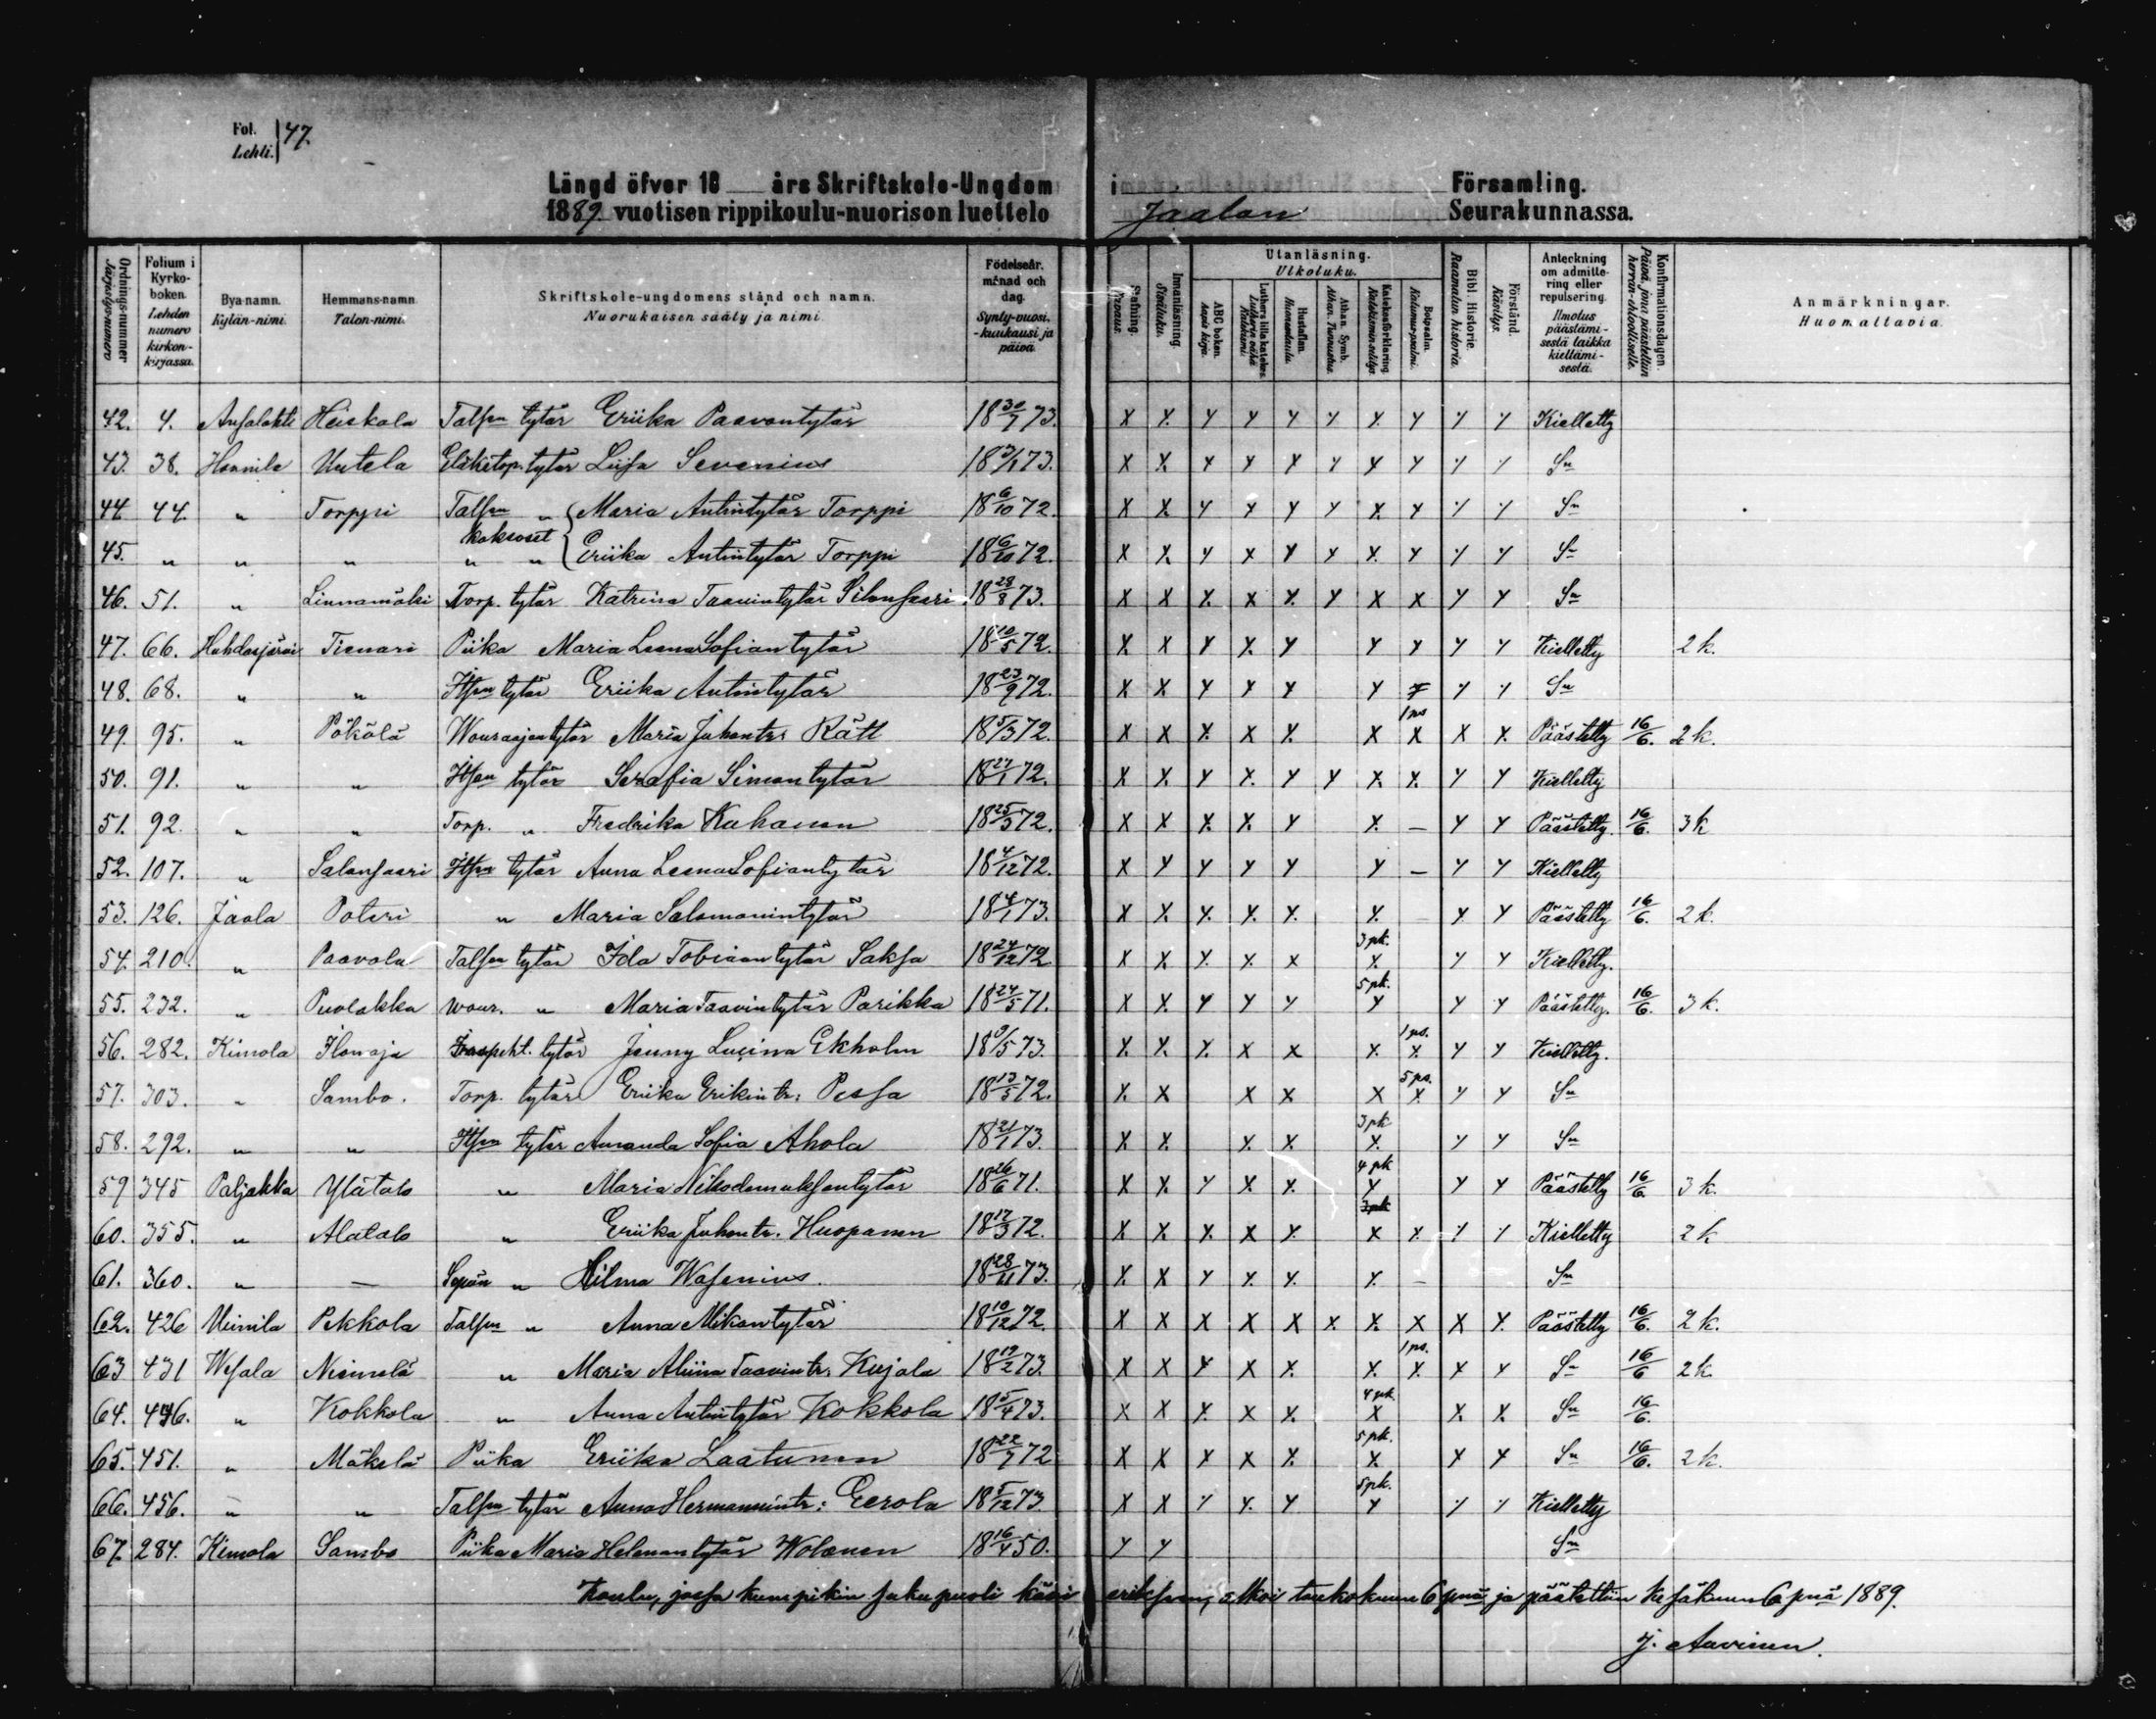 Fol. Lehti. 47.
Längd öfver 18 års Skriftskole-Ungdom i Församling.
1889 vuotisen rippikoulu-nuorison luettelo Jaalan Seurakunnassa.
Ordnings-nummer Järjestys-numero
Folium i Kyrko-boken. Lehden numero kirkon-kirjassa.
Bya-namn. Kylän-nimi.
Hemmans-namn. Talon-nimi.
Skriftskole-ungdomens stånd och namn. Nuorukaisen sääty ja nimi.
Födelseår. månad och dag. Synty-vuosi. -kuukausi ja päivä.
Stafning. Tavaus.
Innanläsning. Sisäluku.
Utanläsning. Ulkoluku.
ABC boken. Aapis kirja.
Luthers lilla katekes. Lutheruksen vähä Katekismi.
Hustaflan. Huoneentaulu.
Athan. Symb. Athan. Tunnustus.
Katekesförklaring. Katekismin selitys.
Botpsalm. Katumus-psalmi.
Bibl. Historie. Raamatun historia.
Förstånd. Käsitys.
Anteckning om admitte-ring eller repulsering. Ilmotus päästämi-sestä taikka kieltämi-sestä.
Konfirmationsdagen. Päivä, jona päästettiin herran-ehtoolliselle.
Anmärkningar. Huomattavia.
42. 4. Ansalahti Heiskala Talsen tytär Eriika Paavontytär 18 30/7 73. X X Y Y Y Y X Y Y Y Kielletty
43. 38. Hannila Uutela Eläketop. tytär Liisa Sevenius 18 3/1 73. X X Y Y Y Y Y Y Y Y Sn
44 44. " Torppi Talsen " Maria Antintytär Torppi 18 6/10 72. X X Y Y Y Y X Y Y Y Sn
kaksoset
45. " " " " " Eriika Antintytär Torppi 18 6/10 72. X X Y X Y Y X Y Y Y Sn
46. 51. " Linnamäki Torp. tytär Katrina Taavintytär Pilansaari 18 28/8 73. X X X X X Y X X Y Y Sn
47. 66. Huhdasjärvi Tienari Piika Maria Leena Sofiantytär 18 10/5 72. X X Y X Y Y Y Y Y Kielletty 2 k.
48. 68. " " Itsen tytär Eriika Antintytär 18 23/9 72. X X Y Y Y Y Y Y Y Sn
49. 95. " Pökölä Wouraajan tytär Maria Juhontr: Rätt 18 5/3 72. X X X X X X 1 ps X X X Päästetty 16/6. 2 k.
50. 91. " " Itsen tytär Serafia Simontytär 18 27/1 72. X X Y X Y Y X X Y Y Kielletty
51. 92. " " Torp. " Fredrika Kuhanen 18 25/5 72. X X X X Y X – Y Y Päästetty. 16/6. 3 k
52. 107. " Salansaari Itsen tytär Anna Leena Sofiantytär 18 4/12 72. X Y Y Y Y Y – Y Y Kielletty
53. 126. Jaala Poteri " Maria Salomonintytär 18 4/1 73. X X X X X X – Y Y Päästetty 16/6. 2 k.
54. 210. " Paavola Talsen tytär Ida Tobiaantytär Saksa 18 24/12 72 X X Y X X 3 pk. X Y Y Kielletty.
55. 232. " Puolakka Wour. " Maria Taavintytär Parikka 18 24/5 71. X X Y Y Y 5 pk. Y Y Y Päästetty. 16/6. 3 k.
56. 282. Kimola Ilonoja Inspekt. tytär Jenny Lusina Ekholm 18 9/5 73. X X X X X X 1 ps. X Y Y Kielletty.
57. 303. " Sambo. Torp. tytär Eriika Erikintr: Pessa 18 13/5 72. X X X X X 5 ps. X Y Y Sn
58. 292. " " Itsen tytär Amanda Sofia Ahola 18 21/1 73. X X X X 3 pk X Y Y Sn
59 345 Paljakka Ylätalo " Maria Nikodemuksentytär 18 26/6 71. X X Y X X 4 pk Y Y Y Päästetty 16/6. 3 k.
60. 355. " Alatalo " Eriika Juhontr. Huopanen 18 17/3 72. X X X X X 3 pk X X Y Y Kielletty 2 k
61. 360. " — Sepän " Hilma Wasenius. 18 28/11 73. X X Y X X X – Sn
62. 426 Uimila Pekkola Talsen " Anna Mikontytär 18 10/12 72. X X X X X X X X X X Päästetty 16/6. 2 k.
63 431 Wesala Niemelä " Maria Aliina Taavintr. Kujala 18 19/2 73. X X Y X X X 1 ps. X X Y Sn 16/6 2 k.
64. 446. " Kokkola " Anna Antintytär Kokkola 18 5/4 73. X X X X X 4 pk X X X Sn 16/6.
65. 451. " Mäkelä Piika Eriika Laatunen 18 22/7 72 X X Y X X 5 pk. X Y Y Sn 16/6. 2 k.
66. 456. " " Talsen tytär Anna Hermannintr: Eerola 18 5/12 73. X X Y X Y 5 pk. Y Y Y Kielletty
67. 284. Kimola Sambo Piika Maria Helenantytär Wolanen 18 16/4 50. Y Y Sn
Koulu, jossa kumpikin sukupuoli kävi erikseen, alkoi toukokuun 6 pnä ja päätettiin kesäkuun 6 pnä 1889.
J. Auvinen.